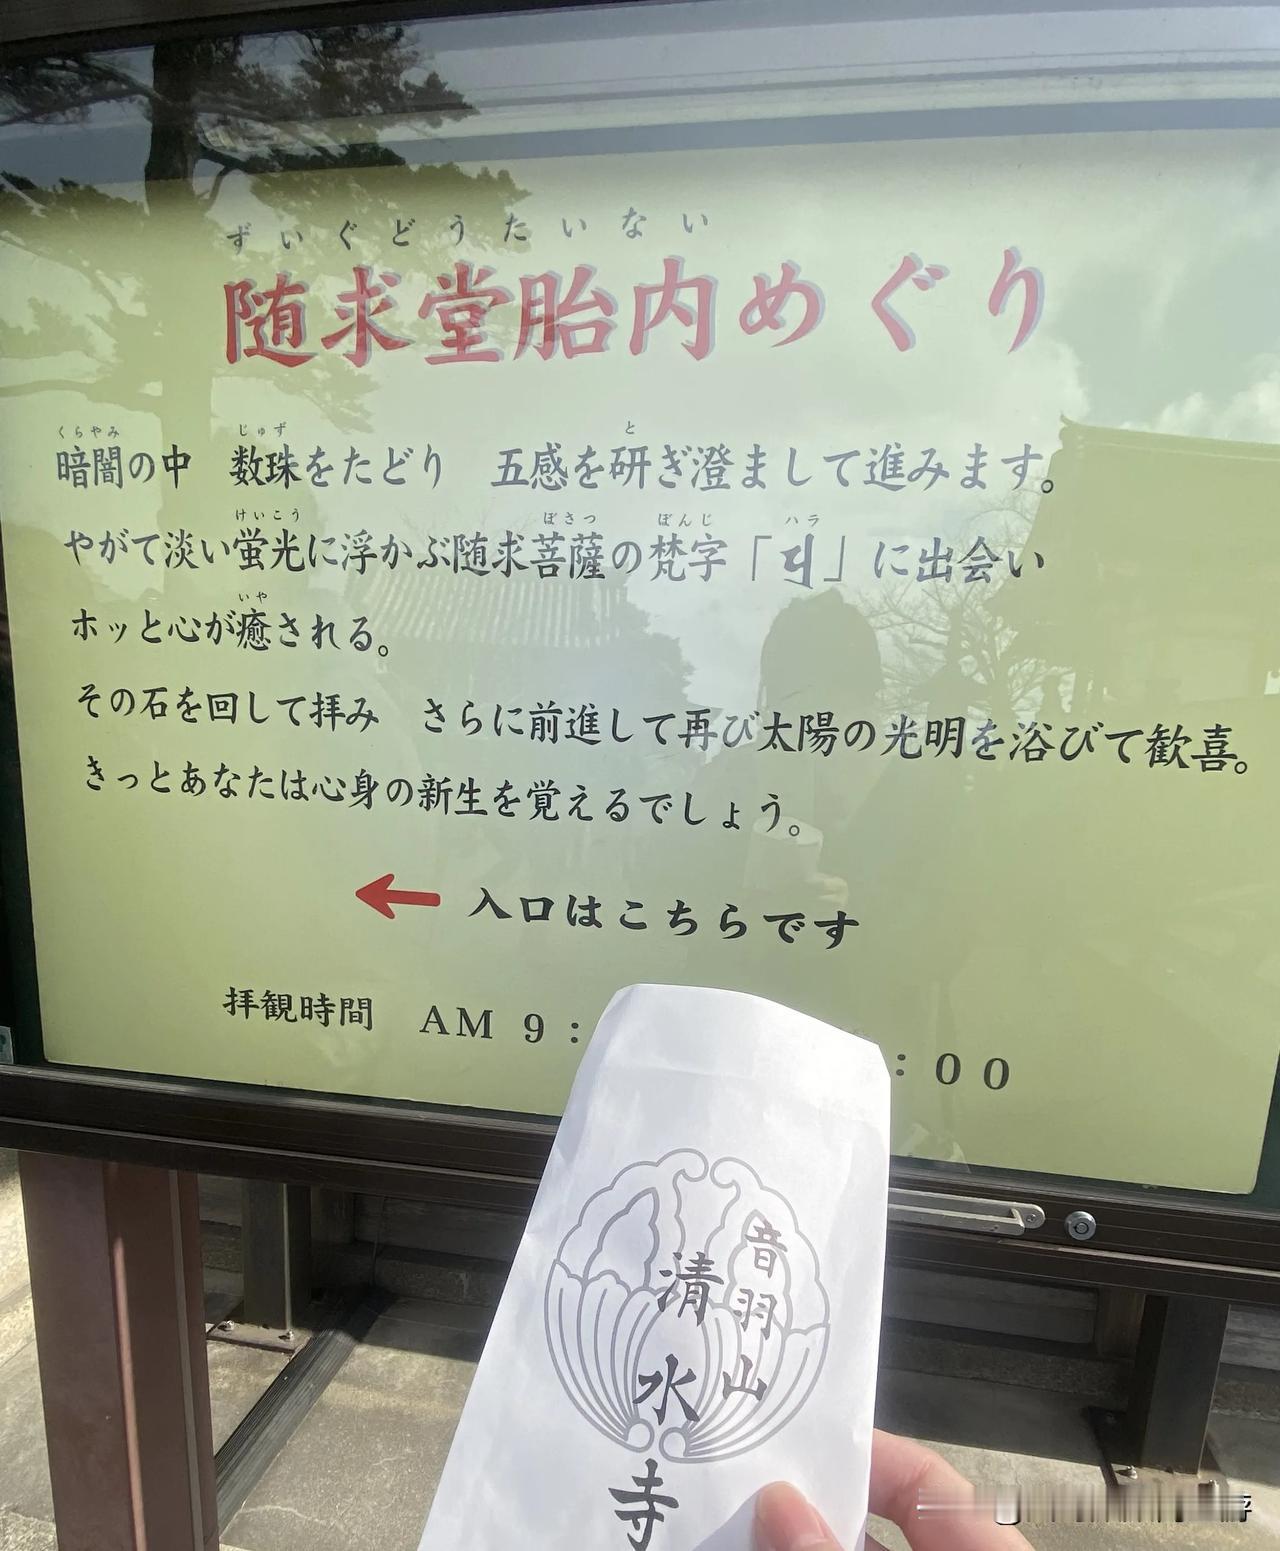 ずいぐどうたいない
随求堂胎内めぐり
くらやみ じゅず と
暗闇の中 数珠をたどり 五感を研ぎ澄まして進みます。
けいこう ぼさつ ぼんじ ハラ
やがて淡い蛍光に浮かぶ随求菩薩の梵字「」に出会い
いや
ホッと心が癒される。
その石を回して拝み さらに前進して再び太陽の光明を浴びて歓喜。
きっとあなたは心身の新生を覚えるでしょう。
入口はこちらです
拝観時間 AM 9: :00
音羽山
清水寺